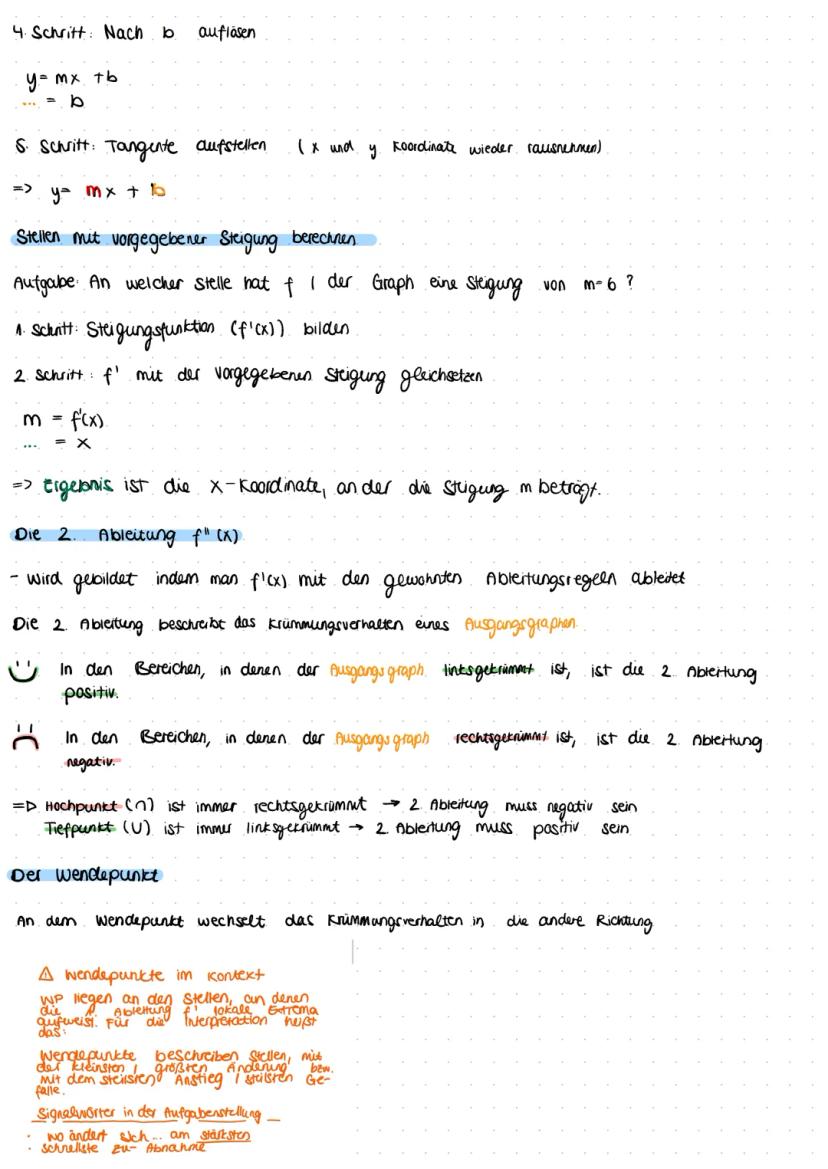 4. Schritt: Nach b auflösen
y= mx + b
... = b
5. Schritt: Tangente aufstellen (x und y Koordinate wieder rausnehmen)
=> y= mx + b
Stellen mit vorgegebener Steigung berechnen
Aufgabe: An welcher Stelle hat f / der Graph eine Steigung von m=6?
1. Schritt: Steigungsfunktion (f'(x)) bilden
2. Schritt: f' mit der vorgegebenen Steigung gleichsetzen
m = f'(x)
... = x
=> Ergebnis ist die x-Koordinate, an der die Steigung m beträgt.
Die 2. Ableitung f"(x)
- wird gebildet indem man f'(x) mit den gewohnten Ableitungsregeln ableitet
Die 2. Ableitung beschreibt das Krümmungsverhalten eines Ausgangsgraphen.
In den Bereichen, in denen der Ausgangsgraph linksgekrümmt ist, ist die 2. Ableitung
positiv.
In den Bereichen, in denen der Ausgangsgraph rechtsgekrümmt ist, ist die 2. Ableitung
negativ.
=> Hochpunkt (∩) ist immer rechtsgekrümmt → 2. Ableitung muss negativ sein
Tiefpunkt (U) ist immer linksgekrümmt → 2. Ableitung muss positiv sein
Der Wendepunkt
An dem Wendepunkt wechselt das Krümmungsverhalten in die andere Richtung
⚠ Wendepunkte im Kontext
WP liegen an den Stellen, an denen
die 1. Ableitung f' lokale Extrema
aufweist. Für die Interpretation heißt
das:
Wendepunkte beschreiben Stellen, mit
der kleinsten / größten Änderung, bzw.
mit dem steilsten Anstieg / steilsten Ge-
fälle.
Signalwörter in der Aufgabenstellung
· wo ändert sich... am stärksten
· schnellste Zu- Abnahme